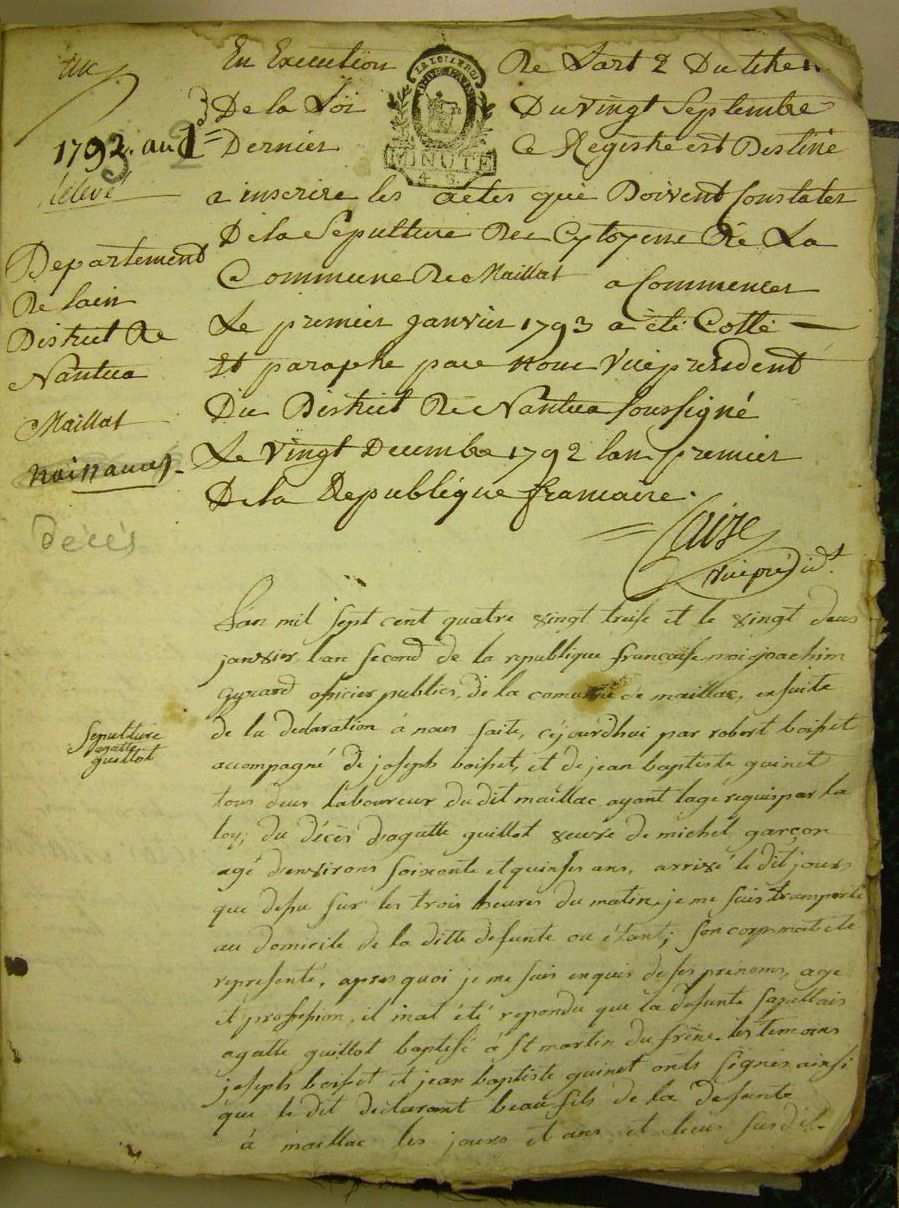 1792. au 1er
Relevé
Departement
De lain
District De
Nantua
Maillat
Naissances
décés
En Execution De Lart 2 Du titre
De la Loi Du vingt Septembre
Dernier Ce Registre est Destiné
LA LOI LE ROI
MINUTE
4 S.
a inscrire les actes qui Doivent Constater
De la Sepulture Des Cytoyens De La
Commune De Maillat a Commencer
Le premier janvier 1793 a été Cotté
Et paraphé par Nous Vice président
Du District De Nantua Soussigné
Le vingt Decembre 1792 lan premier
De la Republique francaise.
vice présidt.
L'an mil sept cent quatre vingt treise et le vingt deus
janvier l'an second de la republique francaise moi joachim
Gyrard officier publics, de la comune de maillac, ensuite
Sepulture
agatte
guillot
de la declaration à nous faite, cejourdhui par robert boisset
accompagné de joseph boisset, et de jean baptiste guinet
tous deus laboureur du dit maillac ayant lage requis par la
loy; du décès d'agatte guillot veuve de michel garçon
agé d'environs soixante et quinses ans, arrivé le dit jours
que desu sur les trois heures du matin, je me suis transporté
au domicile de la ditte defunte ou étant; son corp mat ete
representé, apres quoi je me suis enquis de ses prenoms, age
et profession, il mat été repondu que la defunte sapellais
agatte guillot baptisé à St martin du frêne. les temoins
joseph boisset et jean baptiste guinet onts signés ainsi
que le dit déclarant beau fils de la defunte
à maillac les jours et ans et lieus susdit.